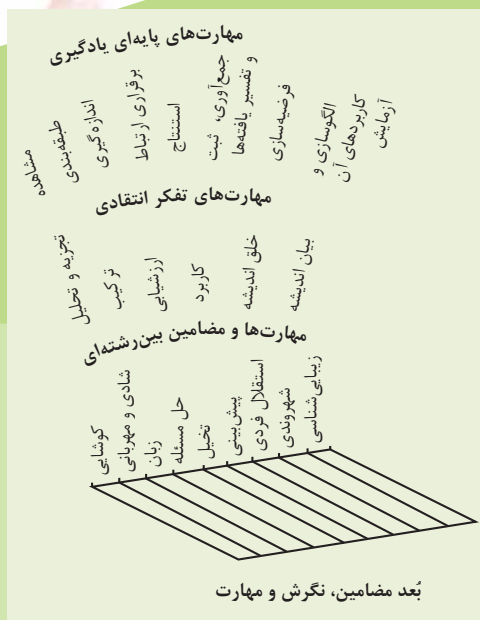 مهارت‌های پایه‌ای یادگیری
مشاهده
طبقه‌بندی
اندازه‌گیری
برقراری ارتباط
استنتاج
جمع‌آوری، ثبت
و تفسیر یافته‌ها
فرضیه‌سازی
الگوسازی و
کاربردهای آن
آزمایش
مهارت‌های تفکر انتقادی
تجزیه و تحلیل
ترکیب
ارزشیابی
کاربرد
خلق اندیشه
بیان اندیشه
مهارت‌ها و مضامین بین‌رشته‌ای
کوشایی
شادی و مهربانی
زبان
حل مسئله
تخیل
پیش‌بینی
استقلال فردی
شهروندی
زیبایی‌شناسی
بُعد مضامین، نگرش و مهارت